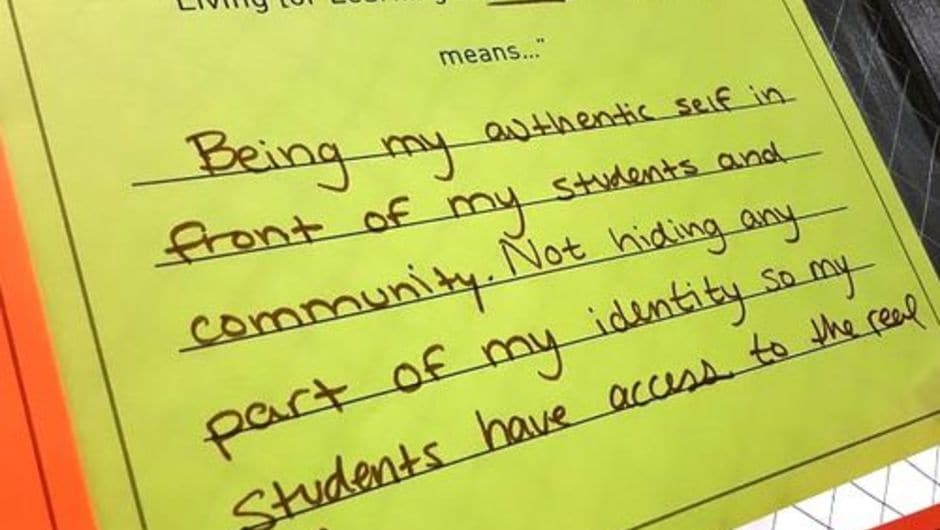 Living for
means..."
Being my authentic self in
front of my students and
community. Not hiding any
part of my identity so my
students have access to the real